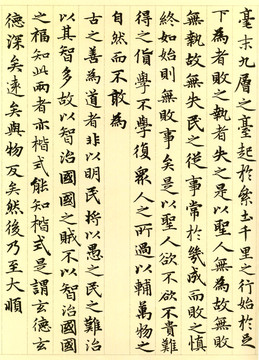 毫末九層之臺起於累土千里之行始於足
下為者敗之執者失之是以聖人無為故無敗
無執故無失民之從事常於幾成而敗之慎
終如始則無敗事矣是以聖人欲不欲不貴難
得之貨學不學復眾人之所過以輔萬物之
自然而不敢為
古之善為道者非以明民將以愚之民之難治
以其智多故以智治國國之賊不以智治國國
之福知此兩者亦楷式能知楷式是謂玄德玄
德深矣遠矣與物反矣然後乃至大順